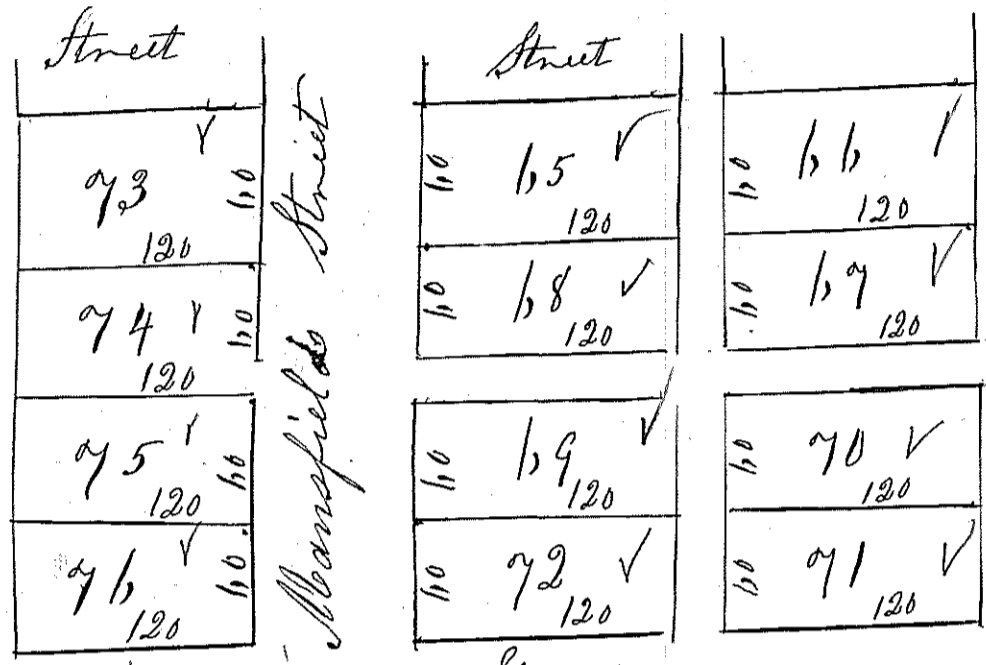 Street
73
60
120
74
60
120
75
60
120
76
60
120
Mansfield Street
Street
60
65
120
60
68
120
60
69
120
60
72
120
60
66
120
60
67
120
60
70
120
60
71
120